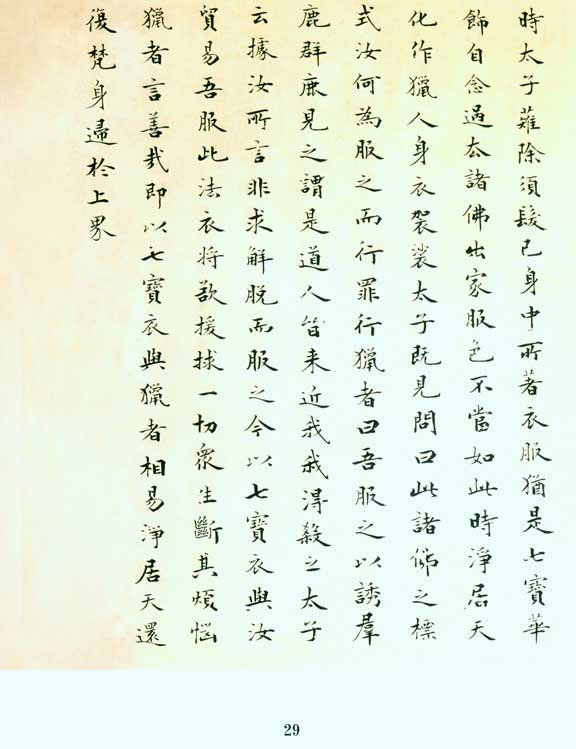 時太子薙除須髮己身中所著衣服猶是七寶華
飾自念過去諸佛出家服色不當如此時淨居天
化作獵人身衣袈裟太子既見問曰此諸佛之標
式汝何為服之而行罪行獵者曰吾服之以誘羣
鹿群鹿見之謂是道人皆来近我我得殺之太子
云據汝所言非求解脫而服之今以七寶衣與汝
貿易吾服此法衣将欲援捄一切衆生斷其煩惱
獵者言善哉即以七寶衣與獵者相易淨居天還
復梵身歸於上界
29